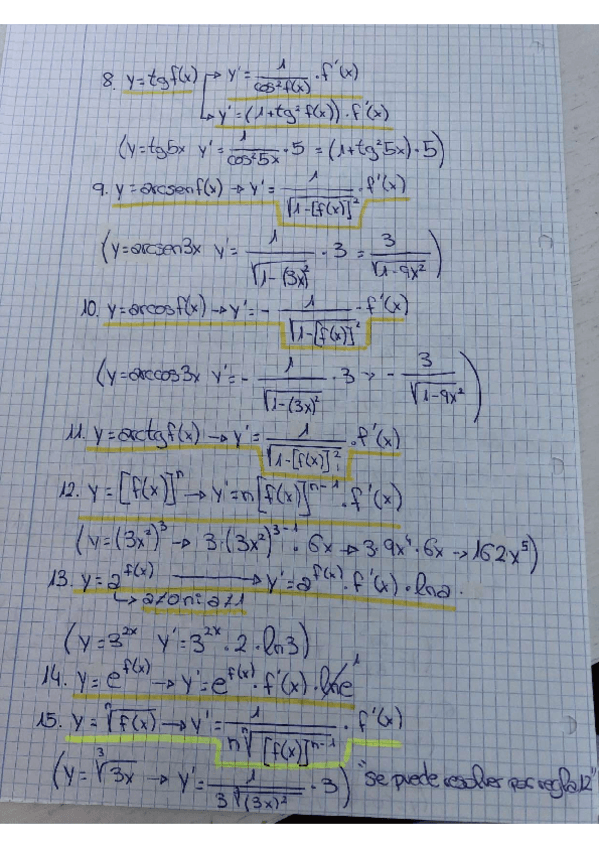 8. y=tgf(x) → y'= 1/cos²f(x) · f'(x)
↳ y'=(1+tg²f(x)) · f'(x)
(y=tg5x y'= 1/cos²5x · 5 = (1+tg²5x) · 5)
9. y=arcsenf(x) → y'= 1/√(1-[f(x)]²) · f'(x)
(y=arcsen3x y'= 1/√(1-(3x)²) · 3 = 3/√(1-9x²))
10. y=arcosf(x) → y'= - 1/√(1-[f(x)]²) · f'(x)
(y=arccos3x y'= - 1/√(1-(3x)²) · 3 → - 3/√(1-9x²))
11. y=arctgf(x) → y'= 1/√(1-[f(x)]²) · f'(x)
12. y=[f(x)]ⁿ → y'=n[f(x)]ⁿ⁻¹ · f'(x)
(y=(3x²)³ → 3·(3x²)³⁻¹ · 6x → 3·9x⁴·6x → 162x⁵)
13. y=a^f(x) → y'=a^f(x) · f'(x) · lna
↳ a≠0 ni a≠1
(y=3^2x y'=3^2x · 2 · ln3)
14. y=e^f(x) → y'=e^f(x) · f'(x) · lne 1
15. y=ⁿ√f(x) → y'= 1/(n ⁿ√[f(x)]ⁿ⁻¹) · f'(x)
(y=³√3x → y'= 1/(3 ³√(3x)²) · 3) "se puede resolver por regla 12"